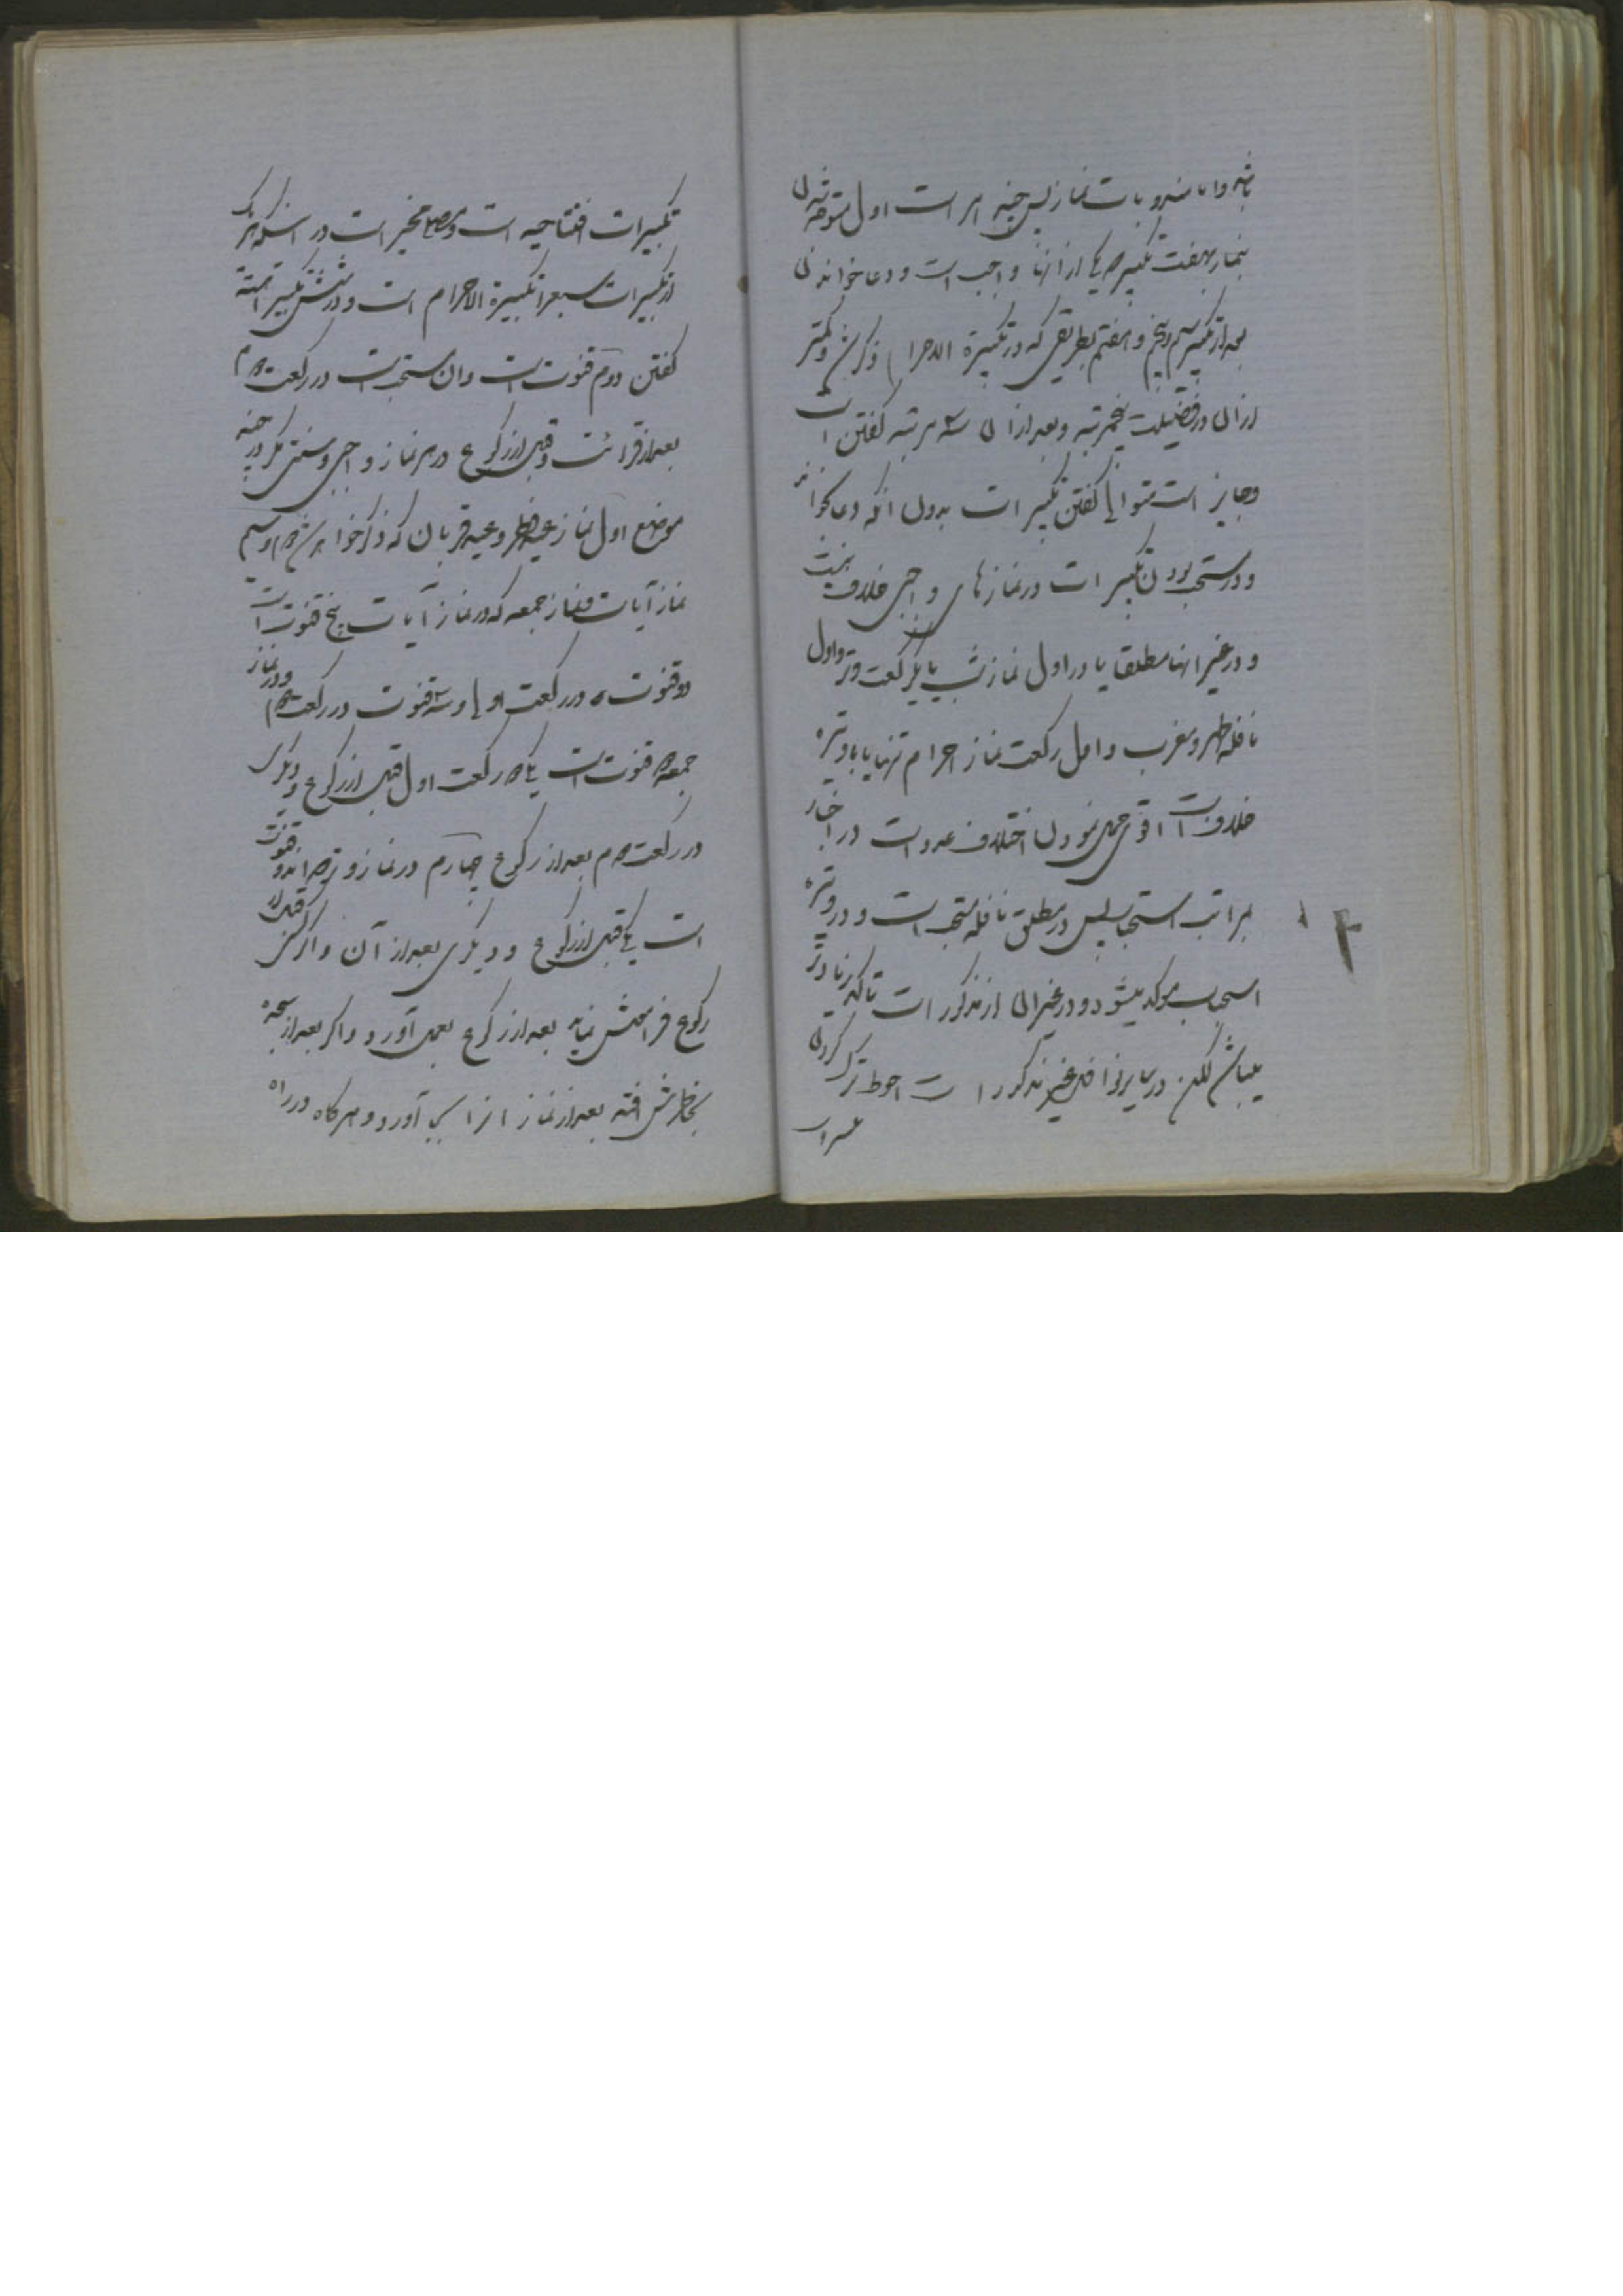 باشد واما مندوبات نماز پس چند امر است اول متوجه شدن
بنماز بهفت تکبیر که یکی از انها واجب است و دعا خواندن
بعد از تکبیر سیم و پنجم و هفتم بطریقی که در تکبیرة الاحرام ذکر شد و کمتر
از ان در فضیلت پنجمرتبه و بعد از ان سه مرتبه گفتن است
وجایز است متوالی گفتن تکبیرات بدون انکه دعا بخواند
و در مستحب بودن تکبیرات در نمازهای واجبی خلاف نیست
و در غیر انها مطلقا یا در اول نماز شب یا یکرکعت وتر و اول
نافله ظهر و مغرب و اول رکعت نماز احرام تنها یا با وتیره
خلاف است اقوی حمل نمودن اختلاف عدد است در اخبار
بمراتب استحباب پس در مطلق نافله مستحب است و در وتیره
استحباب موکد میشود و در غیر ان از مذکورات تاکید زیادتر
میباشد لکن در سایر نوافل غیر مذکورات احوط ترک کردن
تکبیرات افتتاحیه است و مصلی مخیر است در اینکه هر یک
از تکبیرات سبعه را تکبیرة الاحرام است و در شش تکبیر اهسته
گفتن دوم قنوت است وان مستحب است در رکعت دوم
بعد از قرائت و قبل از رکوع در هر نماز واجبی و سنتی مگر در چند
موضع اول نماز عید فطر و عید قربان که ذکر خواهد شد دوم و سیم
نماز آیات و نماز جمعه که در نماز آیات پنج قنوت است
دو قنوت در رکعت اولی و سه قنوت در رکعت دوم و در نماز
جمعه دو قنوت است یکی در رکعت اول قبل از رکوع و دیگری
در رکعت دوم بعد از رکوع چهارم در نماز وتر که در ان دو قنوت
است یکی قبل از رکوع و دیگری بعد از آن و اگر کسی قبل از
رکوع فراموش نماید بعد از رکوع بعمل آورد و اگر بعد از سجده
بخاطرش افتد بعد از نماز انرا بجا آورد و هرگاه در راه